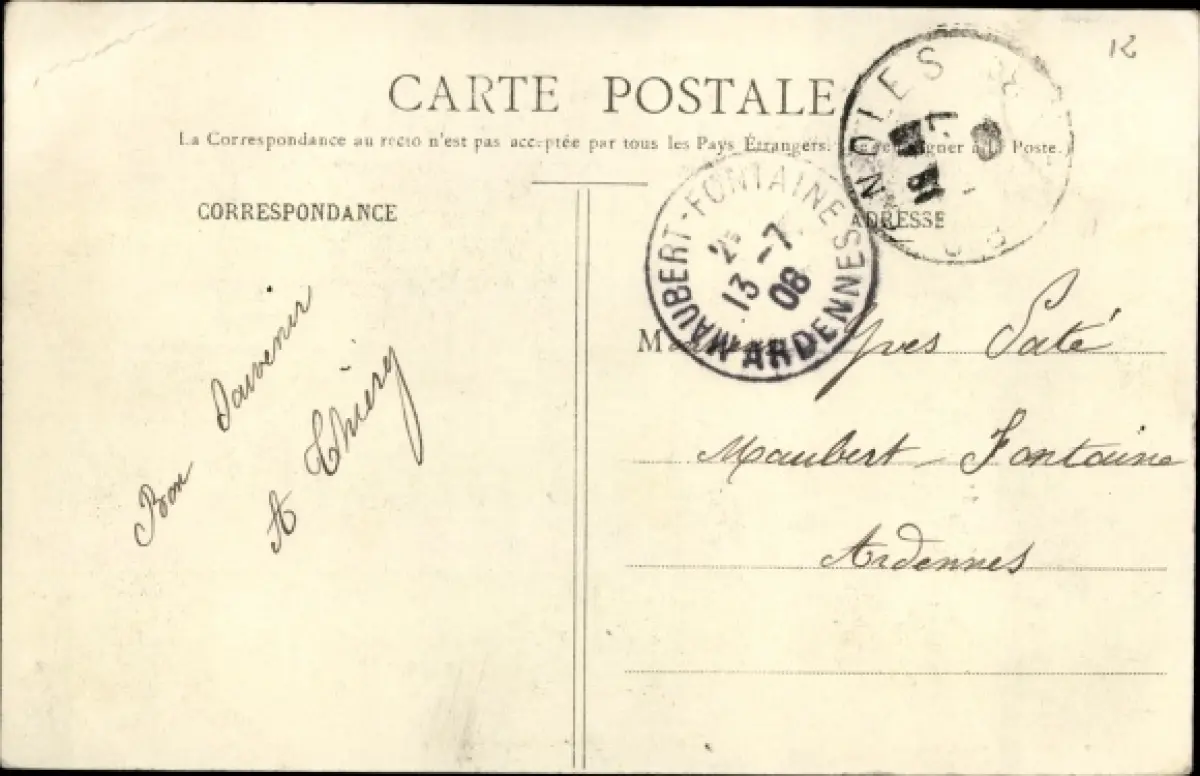 12
CARTE POSTALE
La Correspondance au recto n'est pas acceptée par tous les Pays Étrangers. à la Poste.
CORRESPONDANCE
ADRESSE
MAUBERT-FONTAINE
13 -7
08
ARDENNES
NOLES
Bon Souvenir
A Thiery
Yves Paté
Maubert-Fontaine
Ardennes